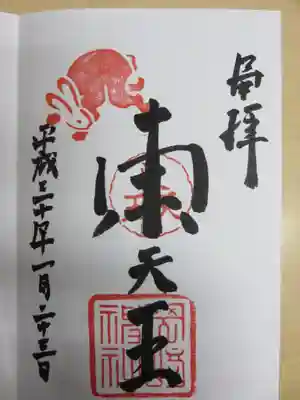 奉拝
東天王
岡﨑神社
平成三十年一月二十三日